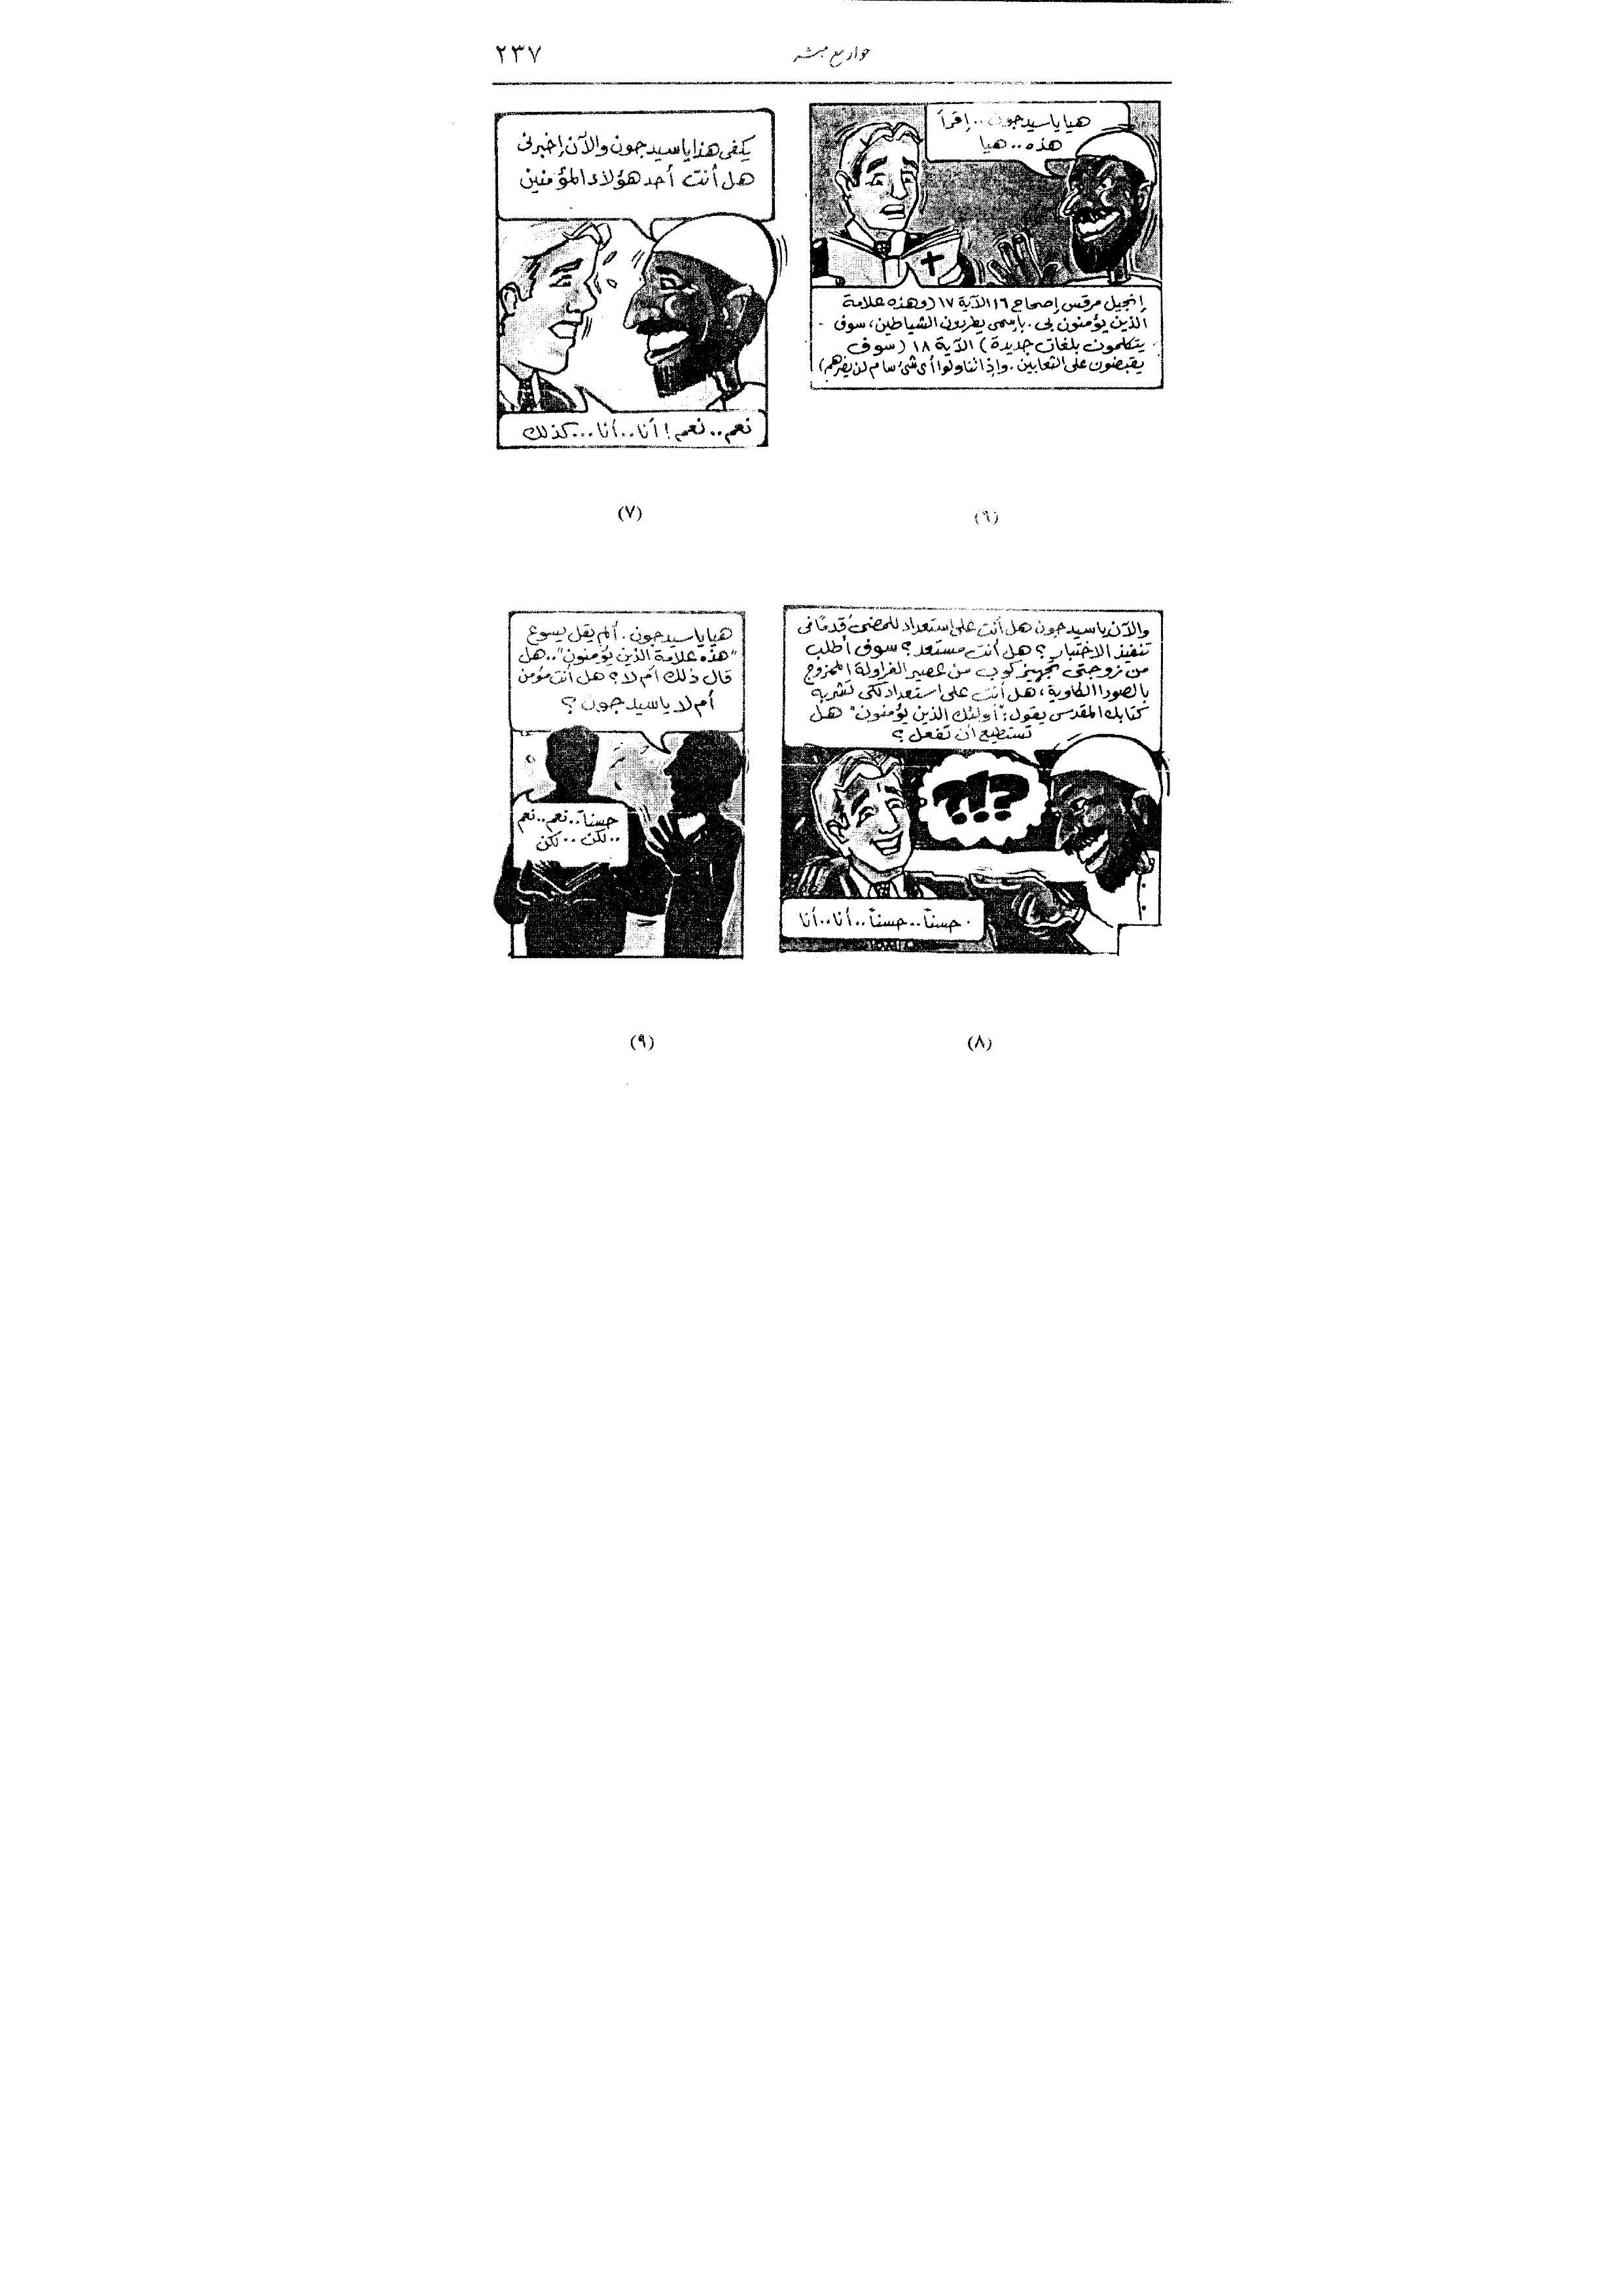 حوار مع مبشر
٢٣٧
هيا يا سيد جون..إقرأ
هذه..هيا
إنجيل مرقس إصحاح ١٦ الآية ١٧ (وهذه علامة
الذين يؤمنون بى. بإسمى يطردون الشياطين، سوف
يتكلمون بلغات جديدة) الآية ١٨ (سوف
يقبضون على الثعابين. وإذا تناولوا أى شئ سام لن يضرهم)
(٦)
يكفى هذا يا سيد جون والآن إخبرنى
هل أنت أحد هؤلاء المؤمنين
نعم..نعم! أنا..أنا...كذلك
(٧)
والآن يا سيد جون هل أنت على إستعداد للمضى قدمًا فى
تنفيذ الاختبار؟ هل أنت مستعد؟ سوف أطلب
من زوجتى تجهيز كوب من عصير الفراولة الممزوج
بالصودا الكاوية، هل أنت على استعداد لكى تشربه
كتابك المقدس يقول: "أولئك الذين يؤمنون" هل
تستطيع أن تفعل؟
؟!؟
حسناً..حسناً..أنا..أنا
(٨)
هيا يا سيد جون. ألم يقل يسوع
"هذه علامة الذين يؤمنون"..هل
قال ذلك أم لا؟ هل أنت مؤمن
أم لا يا سيد جون؟
حسناً..نعم..نعم
..لكن..لكن
(٩)